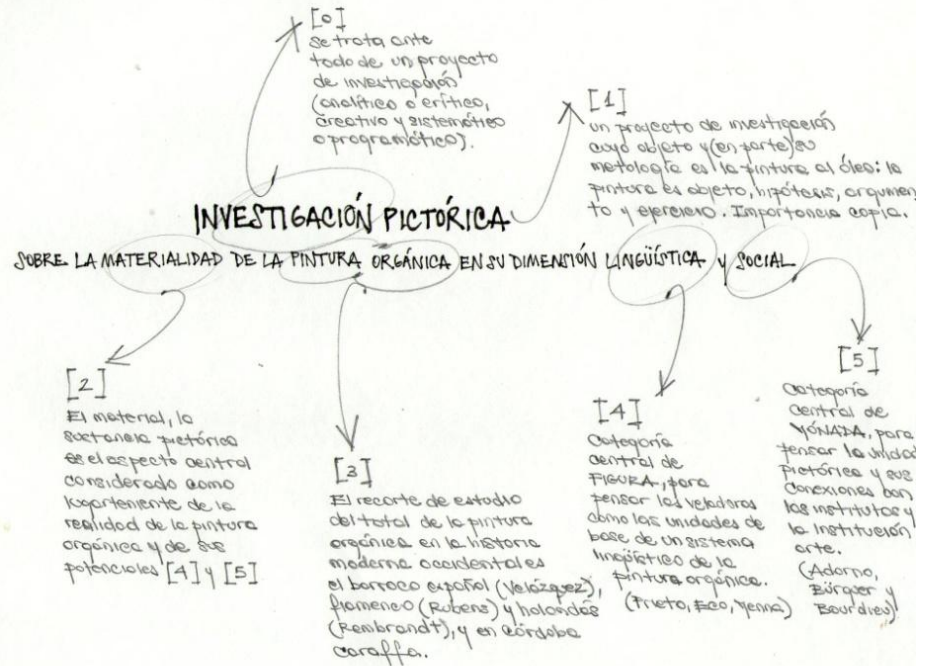 [0]
se trata ante
todo de un proyecto
de investigación
(analítico o crítico,
creativo y sistemático
o programático).
[1]
un proyecto de investigación
cuyo objeto y (en parte) su
metología es la pintura al óleo: la
pintura es objeto, hipótesis, argumen
to y ejercicio. Importancia copia.
INVESTIGACIÓN PICTÓRICA
SOBRE LA MATERIALIDAD DE LA PINTURA ORGÁNICA EN SU DIMENSIÓN LINGÜÍSTICA y SOCIAL
[2]
El material, la
sustancia pictórica
es el aspecto central
considerado como
lugarteniente de la
realidad de la pintura
orgánica y de sus
potenciales [4] y [5]
[3]
El recorte de estudio
del total de la pintura
orgánica en la historia
moderna occidental es
el barroco español (Velázquez),
flamenco (Rubens) y holandés
(Rembrandt), y en córdoba
caraffa.
[4]
Categoría
central de
FIGURA, para
pensar las veladuras
como las unidades de
base de un sistema
lingüístico de la
pintura orgánica.
(Prieto, Eco, Menna)
[5]
Categoría
central de
MÓNADA, para
pensar la unidad
pictórica y sus
conexiones con
los institutos y
la institución
arte.
(Adorno,
Bürguer y
Bourdieu)